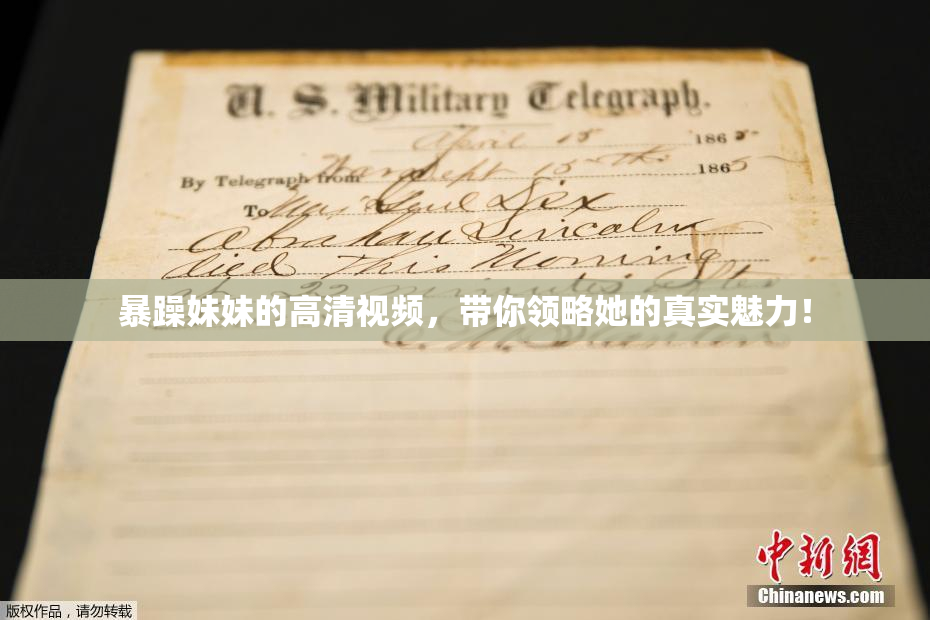 U. S. Military Telegraph.
April 15 1865
By Telegraph from War Dept 15th 1865
To Maj Genl Dix
Abraham Lincoln
died This Morning
at 22 minutes after
暴躁妹妹的高清视频，带你领略她的真实魅力！
E. M. Stanton
中新网
Chinanews.com
版权作品，请勿转载